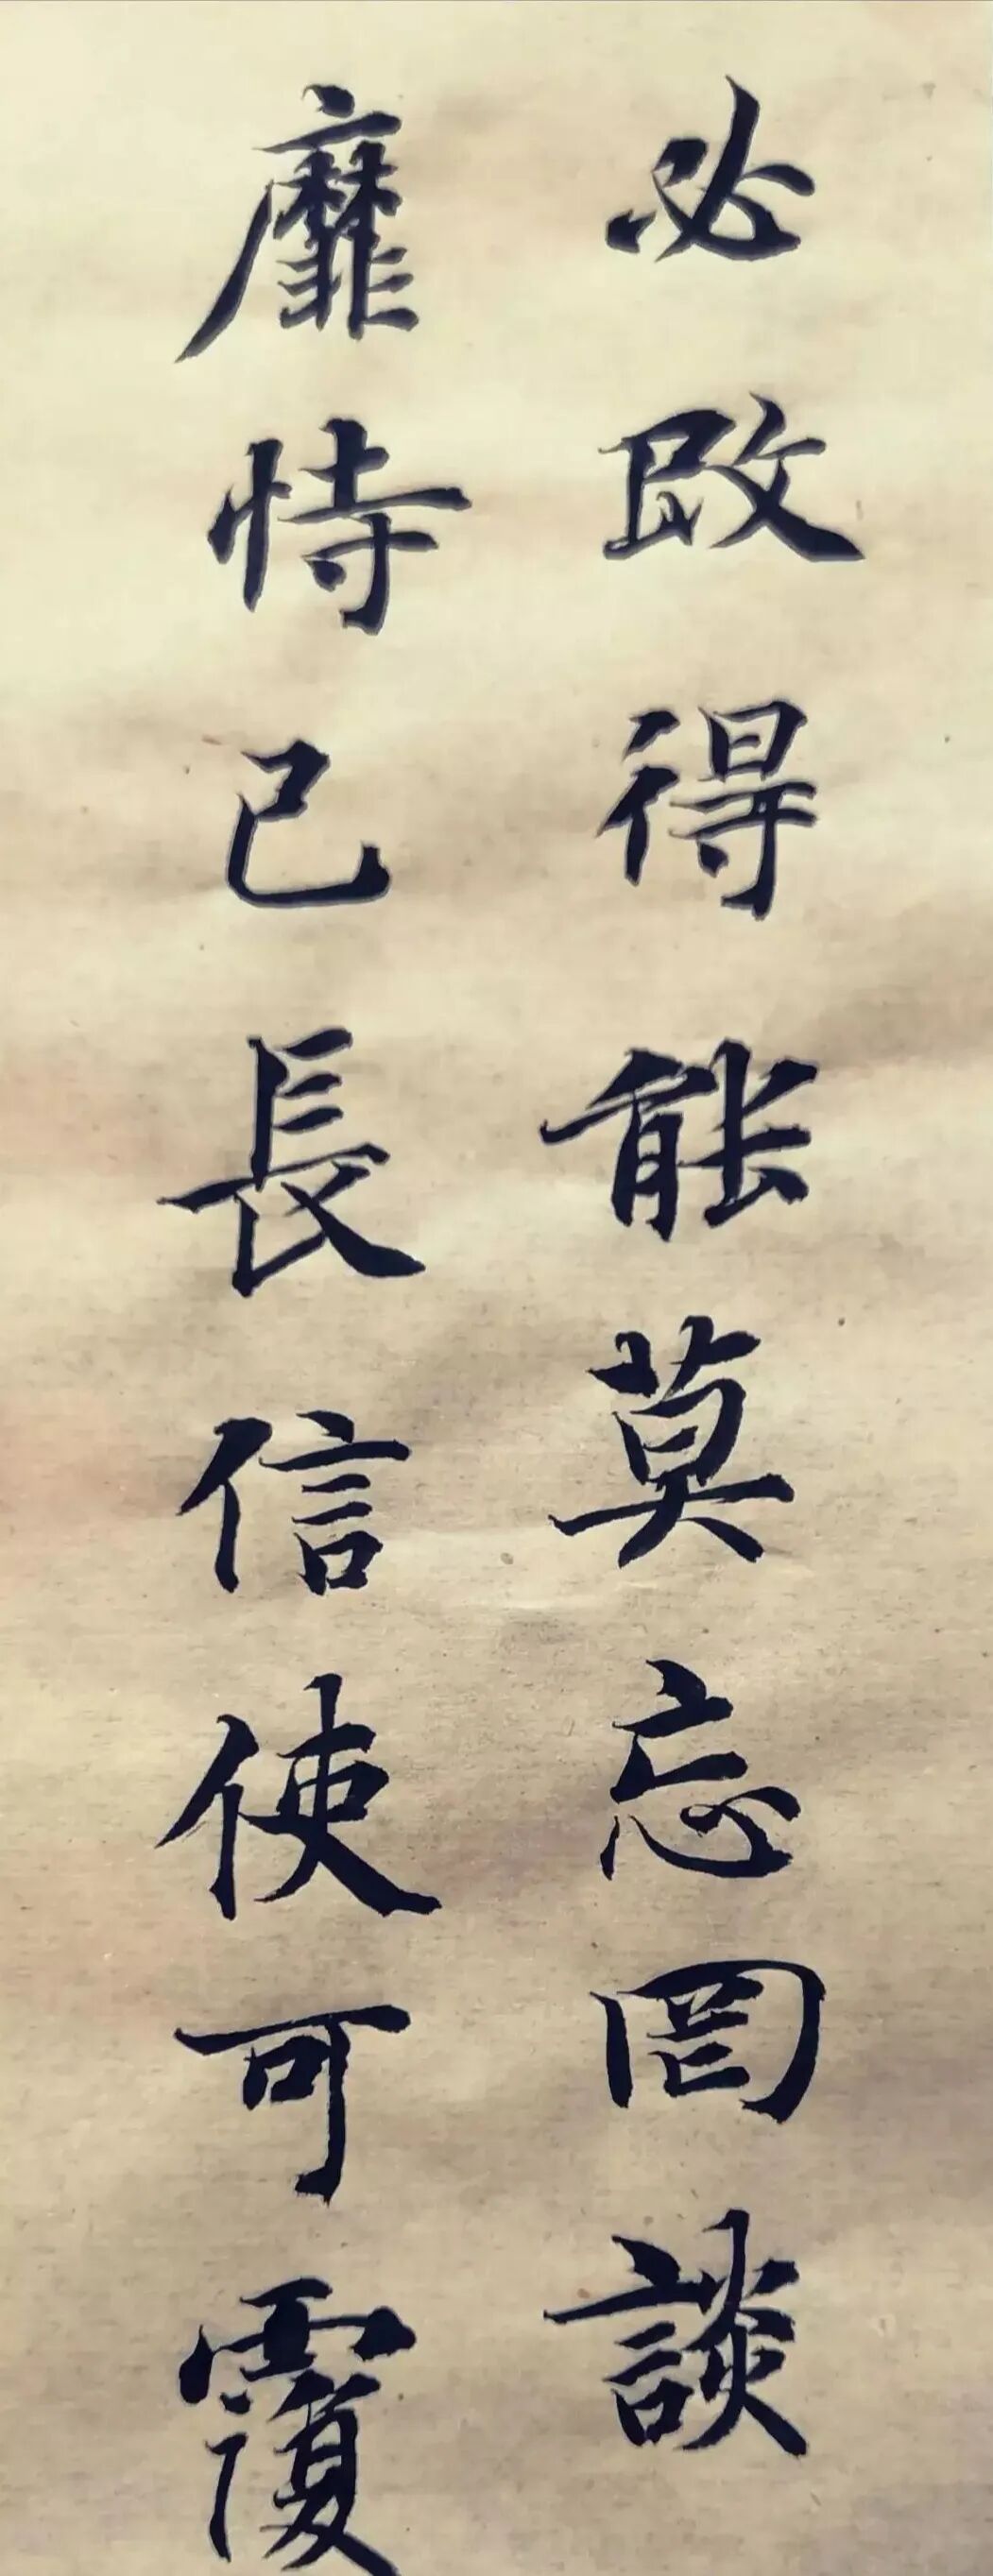 必改得能莫忘罔談
靡恃己長信使可覆